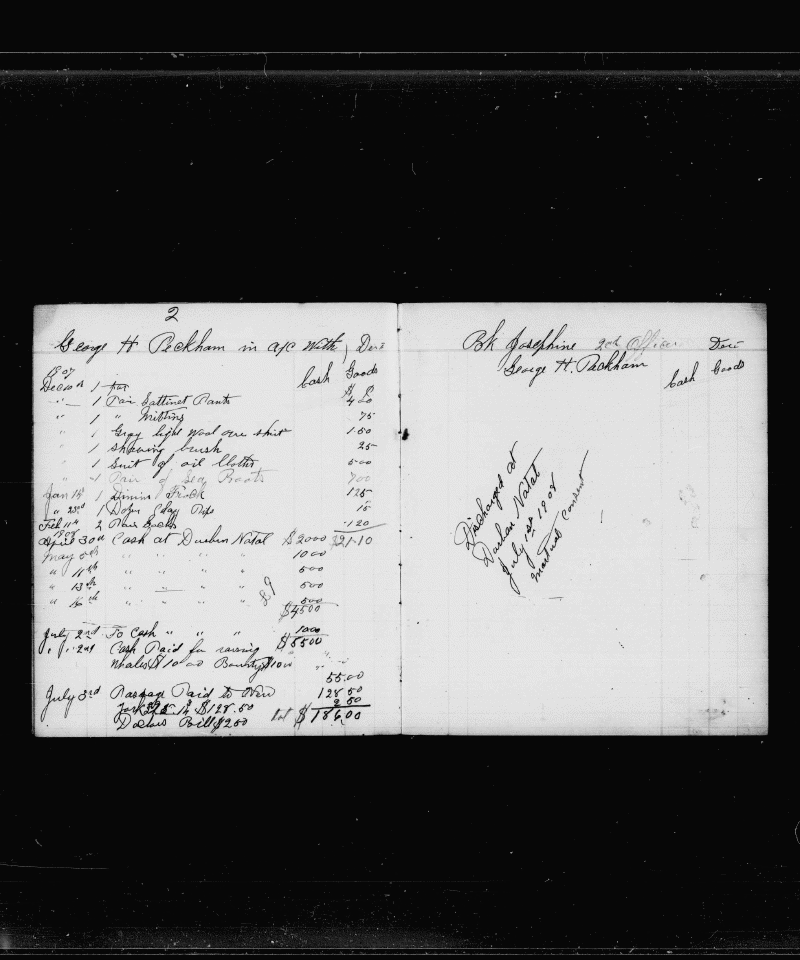 2
George H Peckham in a/c With
1907 Cash Goods
Dec 1 Pair
" 1 Pair Sattinet Pants 4 00
" 1 " Mittins 75
" 1 Gray light Wool over shirt 1.50
" 1 Shaving brush 25
" 1 Suit of oil Cloths 500
" 1 Pair of Sea Boots 700
Jan 1 Frock 125
" 23rd 1 Dozen Clay Pips 15
Feb 11th 2 Pair Socks 120
1908
April 30th Cash at Durban Natal $2000 $21-10
May " " " " 1000
" 11th " " " " 500
" 13th " " " " 500
" " " " " 500
$4500
July 2nd To Cash " " " 1000
$5500
" " 2nd Cash Paid for raising
Whales $10 00 Bounty $10
55.00
July 3rd Passage Paid to New 128 50
York $128.50 2 50
Doctors Bill $2 50 $186.00
Bk Josephine 2nd Officer
George H. Peckham
Cash Goods
Discharged at
Durban Natal
July 1st 1908
mutual Consent